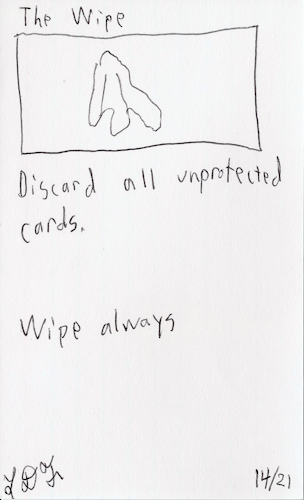 The Wipe
Discard all unprotected
cards.
Wipe always
14/21